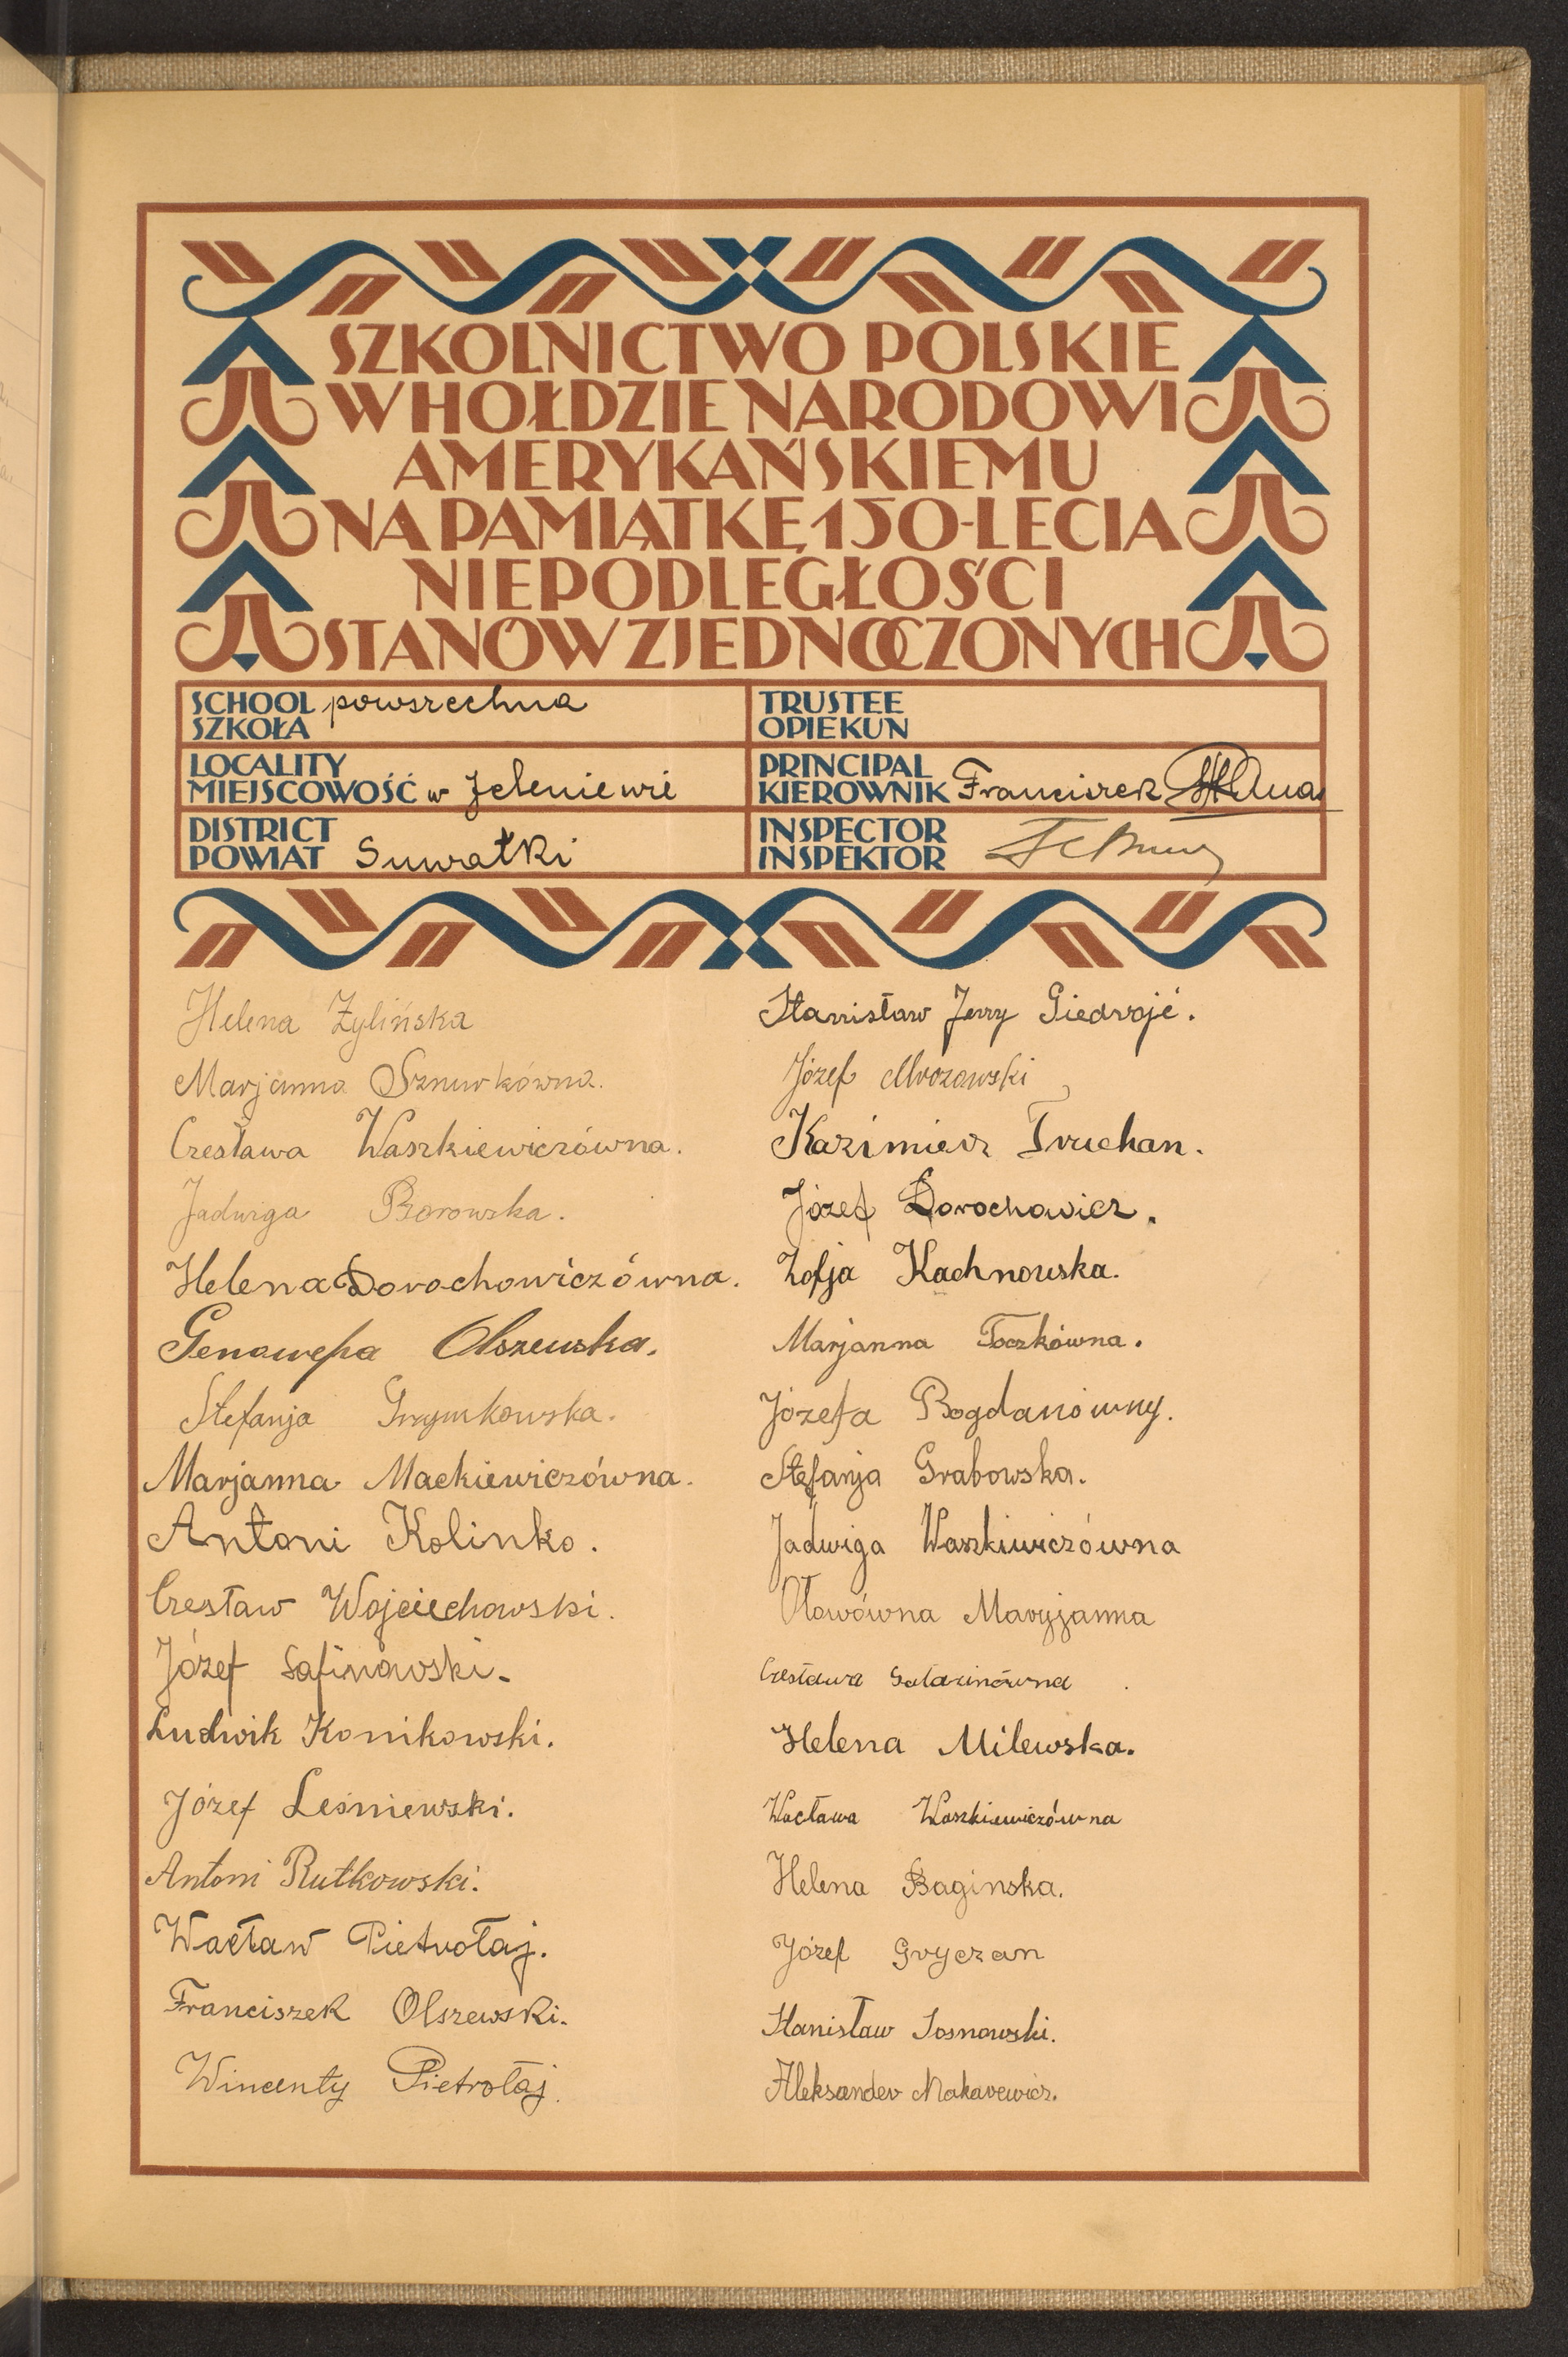 SZKOLNICTWO POLSKIE
W HOŁDZIE NARODOWI
AMERYKAŃSKIEMU
NA PAMIĄTKĘ 150-LECIA
NIEPODLEGŁOŚCI
STANÓW ZJEDNOCZONYCH
SCHOOL
SZKOŁA powszechna
TRUSTEE
OPIEKUN
LOCALITY
MIEJSCOWOŚĆ w Jeleniewie
PRINCIPAL
KIEROWNIK Franciszek
DISTRICT
POWIAT Suwałki
INSPECTOR
INSPEKTOR
Helena Żylińska
Marjanna Sznurkówna.
Czesława Waszkiewiczówna.
Jadwiga Borowska.
Helena Dorochowiczówna.
Genowefa Olszewska.
Stefanja
Marjanna Mackiewiczówna.
Antoni Kolinko.
Czesław Wojciechowski.
Józef Safinowski.
Ludwik Konikowski.
Józef Leśniewski.
Antoni Rutkowski.
Wacław Pietrołaj.
Franciszek Olszewski.
Wincenty Pietrołaj.
Stanisław Jerzy Giedrojć.
Józef Mrozowski
Kazimierz Truchan.
Józef Dorochowicz.
Zofja Kachnowska.
Marjanna Toczkówna.
Józefa Bogdanówny.
Stefanja Grabowska.
Jadwiga Waszkiwiczówna
Ołowówna Maryjanna
Czesława
Helena Milewska.
Wacława Waszkiewiczówna
Helena Baginska.
Józef Gryczan
Stanisław Sosnowski.
Aleksander Makarewicz.